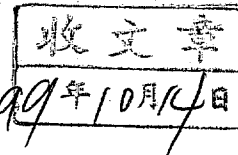 收文章
99年10月14日